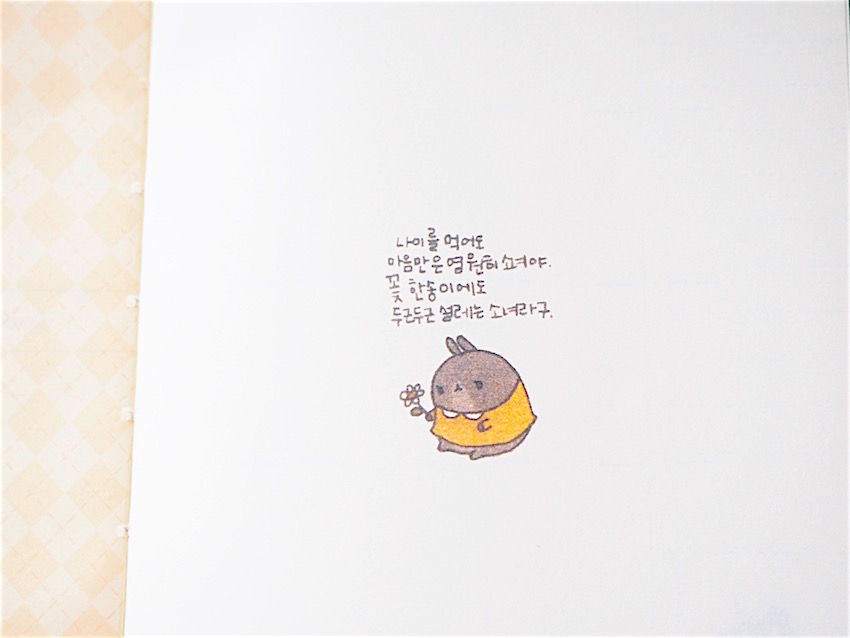 나이를 먹어도
마음만은 영원히 소녀야.
꽃 한송이에도
두근두근 설레는 소녀라구.